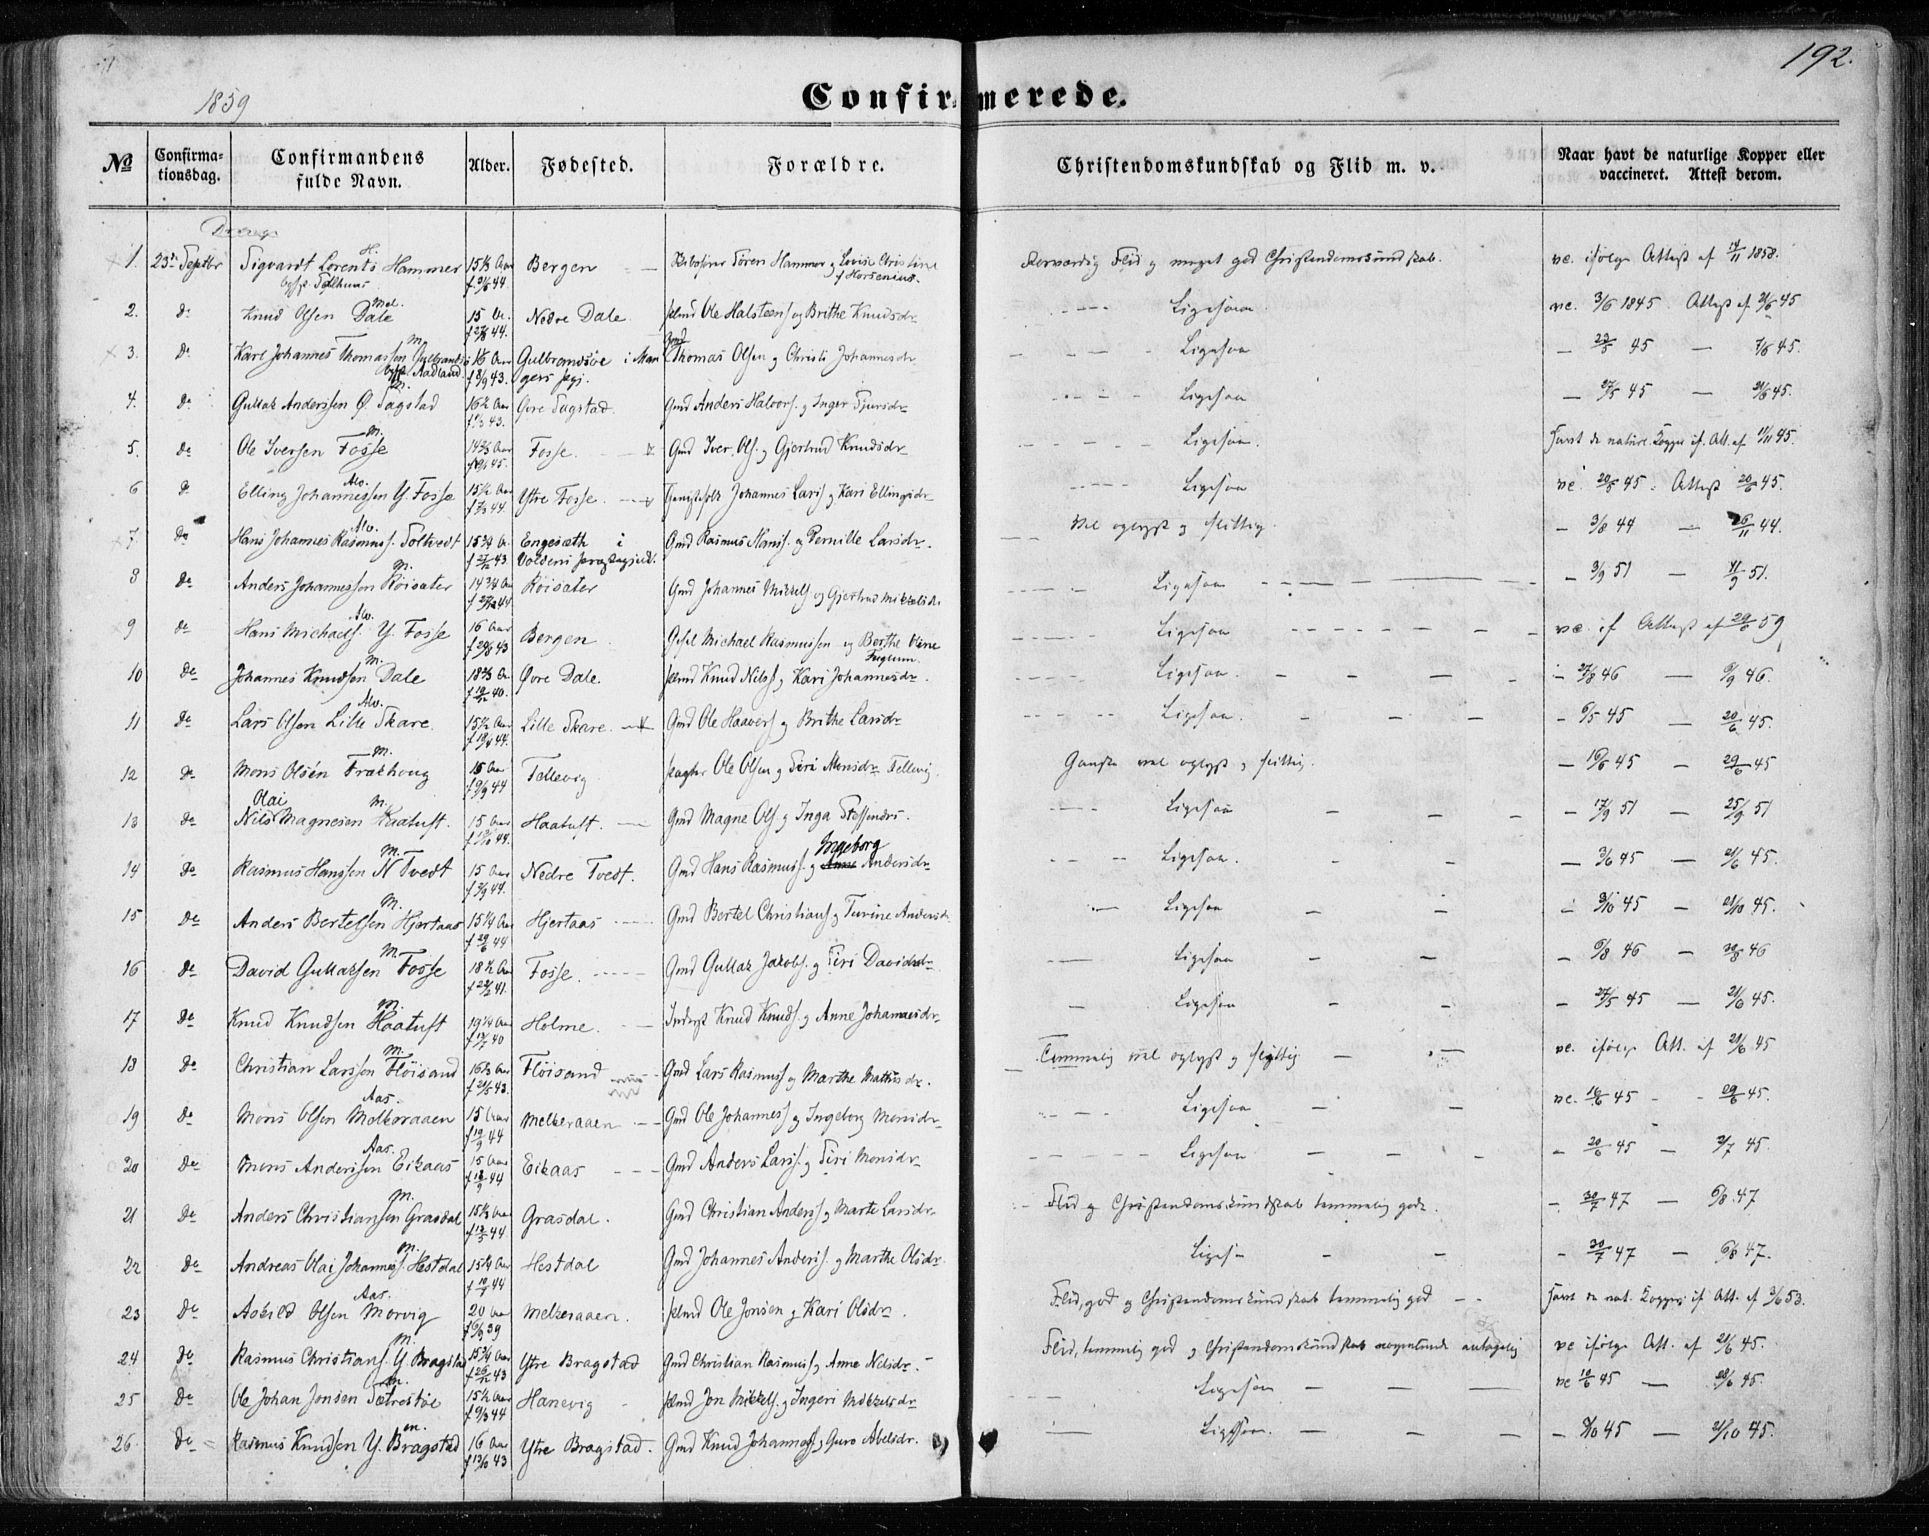 192.
1859
Confirmerede.
No
Confirmationsdag.
Confirmandens fulde Navn.
Alder.
Fødested.
Forældre.
Christendomskundskab og Flid m. v.
Naar havt de naturlige Kopper eller vaccineret. Attest derom.
Drenge
1. 23de Septbr Sigvardt Lorents Hammer 15 1/3 Aar Bergen Søren Hammer og Lovise Christine f Horsenius. Flid og meget god Christendomskundskab. vc. ifølge Attest af 1858.
2. do Knud Olsen Dale 15 Nedre Dale Ole Halsteens og Brithe Knudsdr Ligesaa vc. 3/6 1845 Attest af 21/6 45
3. do Karl Johannes Thomassen 16 Aar f 8/9 43. Gulbrandsøe i Manger Prgj. Gmd Thomas Olsen og Christi Johannesdr Ligesaa 45 7/6 45.
4. do Gullak Anderssen Ø. Sagstad 16 1/2 Aar Øvre Sagstad. Gmd Anders Halvors. og Inger Sjursdr Ligesaa 27/5 45 21/6 45.
5. do Ole Iversen Fosse 14 2/3 Aar Fosse. Gmd Iver Ols. og Gjertrud Knudsdr Ligesaa. Havt de naturl. Kopper if. Att. af 11/11 45.
6 do Elling Johannessen Y. Fosse 15 1/2 Aar Ytre Fosse. Johannes Lars. og Kari Ellingsdr Ligesaa vc. 20/5 45. Attest 20/6 45.
7. do Hans Johannes Rasmuss. Toltvedt 15 3/4 A. Engesæth i Voldens Præstegjeld. Gmd Rasmus Hans. og Pernille Larsdr. Vel oplyst og flittig. 3/8 44 26/11 44.
8 do Anders Johannessen Röisater 14 3/4 Aar Röisater Gmd Johannes Mikkels. og Gjertrud Mikkelsdr Ligesaa 3/9 51 11/9 51.
9 do Hans Michaels. Y. Fosse 16 Aar Bergen Michael Rasmussen og Berthe Ligesaa vc. if Attest af 29/6 59
10 do Johannes Knudsen Dale 18 2/3 Aar Øvre Dale. Knud Nils. og Kari Johannesdr. Ligesaa. 27/8 46 9/9 46.
11 do Lars Olsen Lille Skare. 15 1/2 Aar Lille Skare. Gmd Ole Haavers. og Brithe Larsdr Ligesaa. 6/5 45 20/6 45.
12 do Mons Olsen Trækhoug 15 Aar Tellevig Ole Olsen og Siri Monsdr Tellevig. Ganske vel oplyst og flittig. 16/6 45 29/6 45
13 do Nils Olai Magnesen Haatuft. 15 Aar Haatuft. Gmd Magne Ols. og Inga Steffensdr. Ligesaa 17/9 51 25/9 51
14 do Rasmus Hanssen N Tvedt 15 Aar Nedre Tvedt. Gmd Hans Rasmuss. og Ingeborg Andersdr Ligesaa. 3/6 45 21/6 45.
15 do Anders Bertelsen Hjertaas 15 1/4 Aar f 29/6 44 Hjertaas Gmd Bertel Christians. og Turine Andersdr Ligesaa 9/10 45 21/10 45.
16 do David Gullaksen Fosse 18 1/2 Aar Fosse. Gmd Gullak Jakobs. og Siri Davidsdr Ligesaa 6/8 46 46
17 do Knud Knudsen Haatuft 19 1/4 Aar Holme. Inderst Knud Knuds. og Anne Johannesdr. Ligesaa 27/5 45 21/6 45.
18 do Christian Larssen Flöisand 16 1/3 Aar f 21/5 43. Flöisand Gmd Lars Rasmuss. og Marthe Mathisdr. Temmelig vel oplyst og flittig vc. ifölge Att. af 21/6 45
19 do Mons Olsen Melkeraaen 15 Aar f 19/9 44 Melkeraaen Gmd Ole Johanness. og Ingeborg Monsdr Ligesaa vc. 16/6 45 29/6 45.
20 do Mons Anderssen Eikaas 15 Aar f 18/9 44 Eikaas Gmd Anders Lars. og Siri Monsdr Ligesaa 20/6 45 2/7 45.
21 do Anders Christiansen Grasdal 15 1/3 Aar f 13/5 44 Grasdal. Gmd Christian Anders. og Marte Larsdr Flid og Christendomskundskab temmelig gode. 30/7 47 6/8 47
22 do Andreas Olai Johanness. Hestdal 15 1/4 Aar Hestdal Gmd Johannes Anders. og Marthe Olsdr. Ligesaa 30/7 47 6/8 47.
23 do Askild Olsen Morvig 20 Aar f 6/9 39 Melkeraaen. Ole Jonsen og Kari Olsdr. Flid god og Christendomskundskab temmelig god Havt de nat. Kopper if. Att. af 3/6 53.
24 do Rasmus Christians. Y. Bragstad 15 3/4 Aar f 26/12 43 Ytre Bragstad Gmd Christian Rasmuss. og Anne Nelsdr. Flid temmelig god og Christendomskundskab nogenlunde antagelig vc ifölge Att. af 21/6 45.
25 do Ole Johan Jonsen Sætrestöe 15 1/2 Aar f 9/3 44 Hanevig Jon Mikkels. og Ingeri Mikkelsdr Ligesaa vc 10/6 45 45.
26 do Rasmus Knudsen Y. Bragstad 16 Aar f 13/10 43 Ytre Bragstad. Gmd Knud Johanness. og Guro Abelsdr. Ligesaa. 9/10 45 21/10 45.